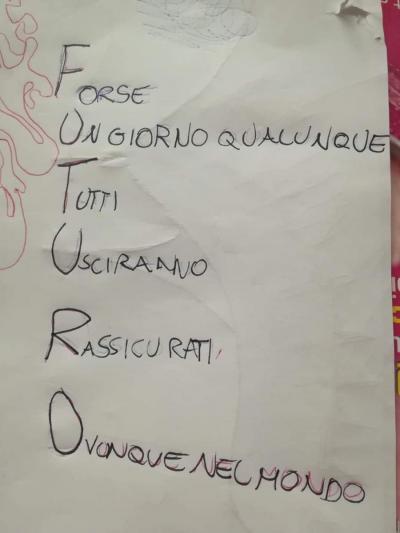 FORSE
UN GIORNO QUALUNQUE
TUTTI
USCIRANNO
RASSICURATI,
OVONQUE NEL MONDO